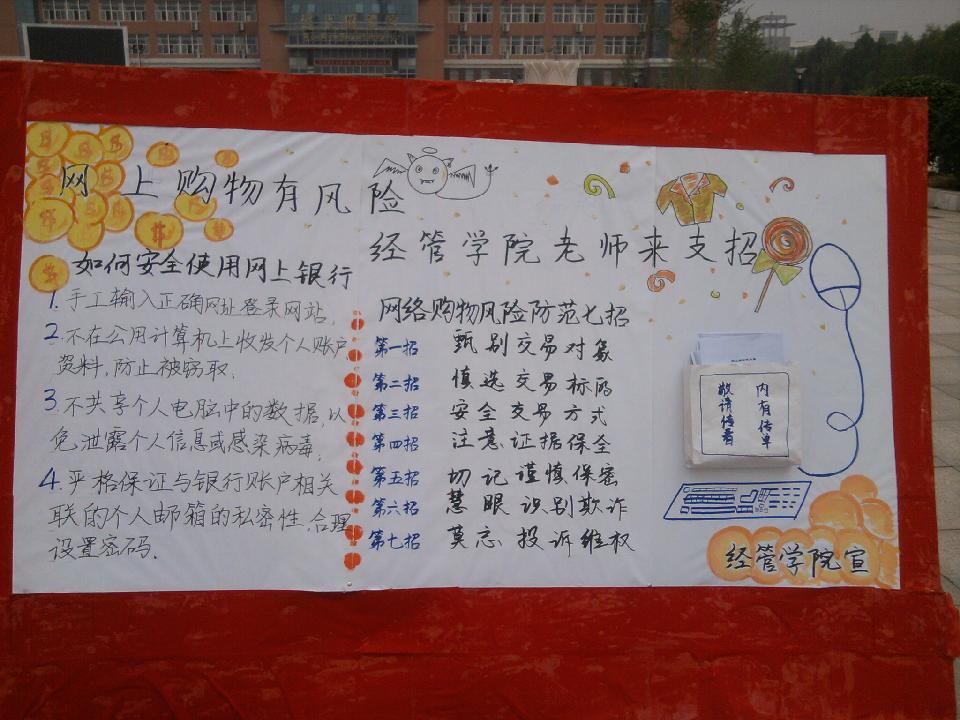 网上购物有风险
经管学院老师来支招
如何安全使用网上银行
1.手工输入正确网址登录网站.
2.不在公用计算机上收发个人账户
资料,防止被窃取.
3.不共享个人电脑中的数据,以
免泄露个人信息或感染病毒.
4.严格保证与银行账户相关
联的个人邮箱的私密性,合理
设置密码.
网络购物风险防范七招
第一招 甄别交易对象
第二招 慎选交易标的
第三招 安全交易方式
第四招 注意证据保全
第五招 切记谨慎保密
第六招 慧眼识别欺诈
第七招 莫忘投诉维权
内有传单
敬请传看
经管学院宣